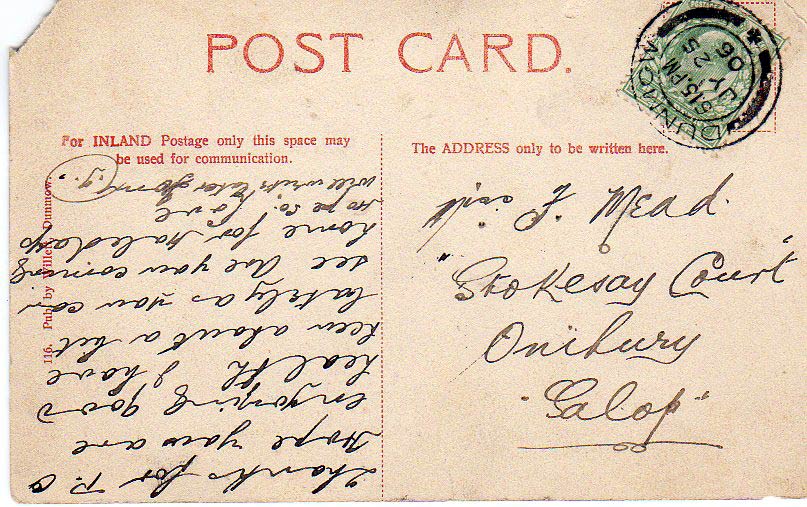 POST CARD.
DUNMOW
5.15.PM
JY 25
06
For INLAND Postage only this space may
be used for communication.
The ADDRESS only to be written here.
116. Pub. by Willett, Dunmow.
Thanks for P.C
Hope you are
enjoying good
health I have
been about a bit
lately as you can
see Are you coming
home for
Hope so. Love
will write later
F. Mead.
"Stokesay Court"
Onibury
"Salop"